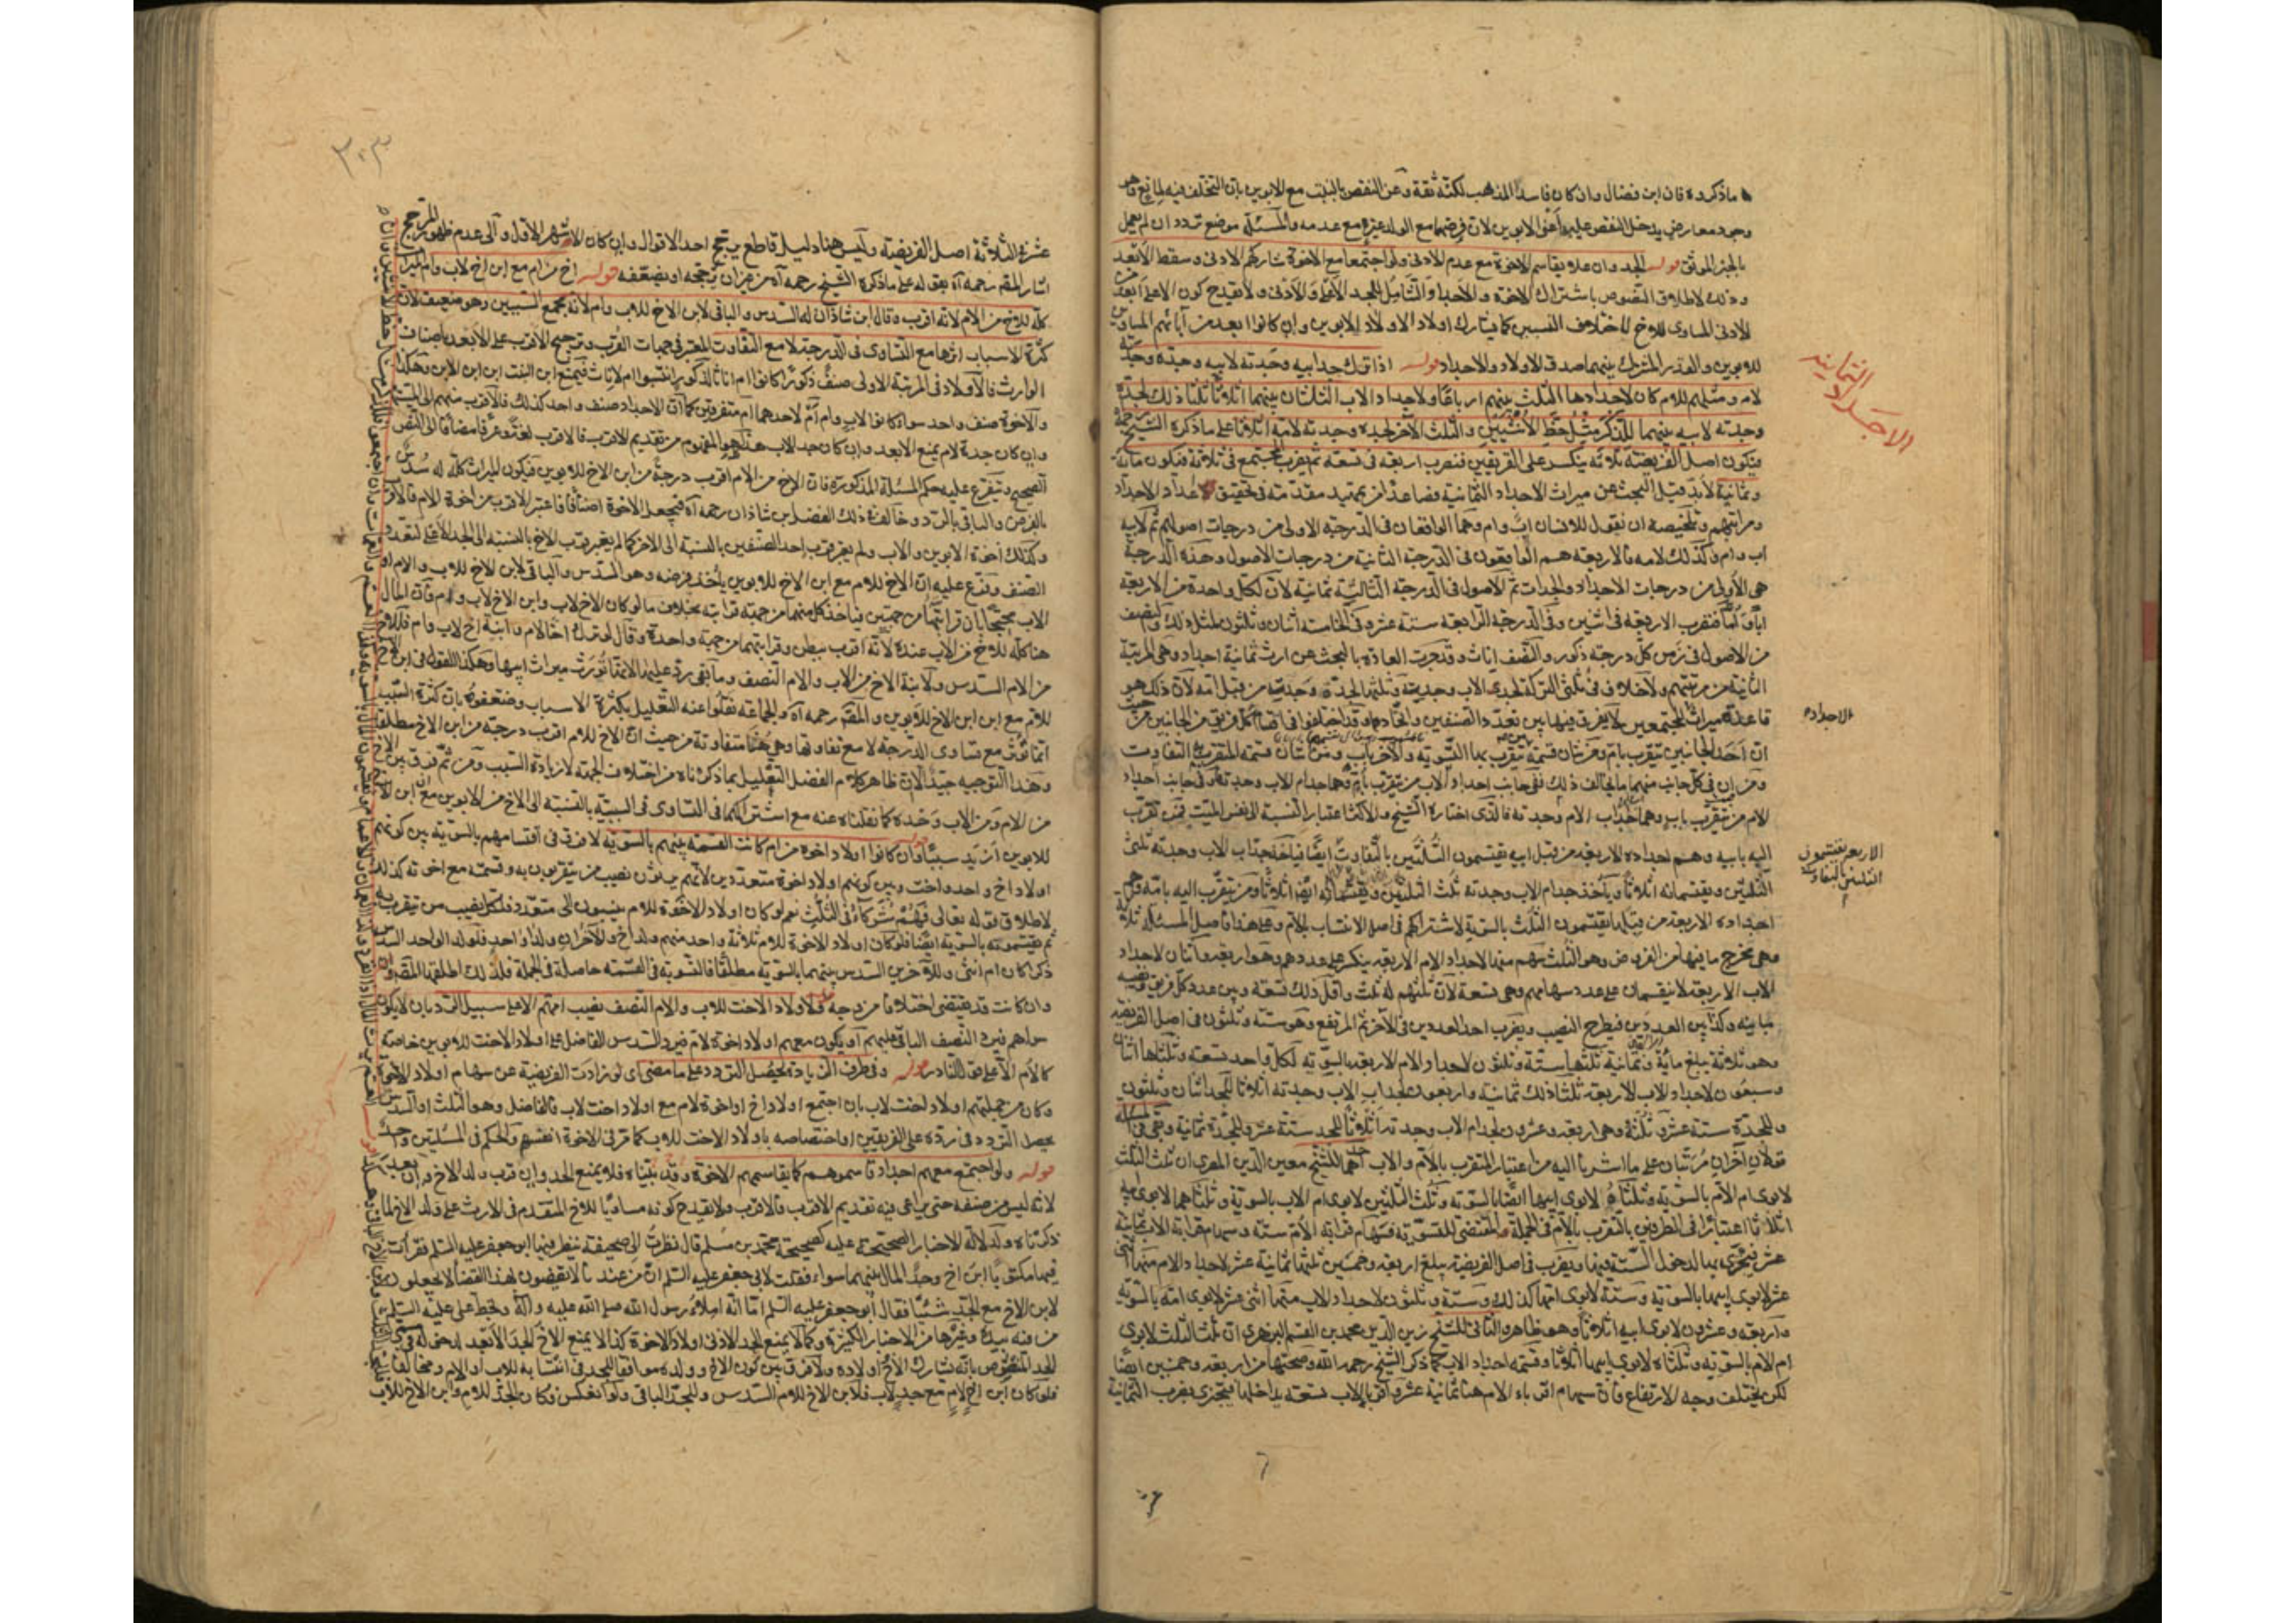 ما ذكروه فان ابن فضال وان كان فاسد المذهب لكنه ثقة وعن النقص بالبنت مع الابوين بان التخلف فيه لمانع وهو
وجود معارض يدخل النقص عليه اعنى الابوين لان فرضهما مع الولد غيره مع عدمه والمسئلة موضع تردد ان لم يعمل
بالخبر الموثق قوله الجد وان علا يقاسم الاخوة مع عدم الادنى ولو اجتمعا مع الاخوة شاركهم الادنى وسقط الابعد
وذلك لاطلاق النصوص باشتراك الاخوة والاجداد الشامل للجد الاعلى والادنى ولا يقدح كون الاعلى ابعد من
الادنى المساوى للاخ لاختلاف النسبين كما يشارك اولاد الاولاد الابوين وان كانوا ابعد من آبائهم المساوين
للابوين والعذر المشترك بينهما صدق الاولاد والاجداد قوله اذا ترك جد ابيه وجدته لابيه وجده وجدته
لام ومثلهم للام كان لاجدادها الثلث بينهم ارباعا ولاجداد الاب الثلثان بينهما اثلاثا ثلثا ذلك لجده
وجدته لابيه بينهما للذكر مثل حظ الانثيين والثلث الآخر لجده وجدته لامه اثلاثا على ما ذكره الشيخ رحمه
فيكون اصل الفريضة ثلاثة ينكسر على الفريقين فنضرب اربعة فى تسعة ثم نضرب المجتمع فى ثلاثة فيكون مائة
وثمانية لا بد قبل البحث عن ميراث الاجداد الثمانية فصاعدا من تمهيد مقدمة فى تحقيق اعداد الاجداد
ومراتبهم وتلخيصه ان نقول للانسان اب وام وهما الواقعان فى الدرجة الاولى من درجات اصوله ثم لابيه
اب وام وكذلك لامه فالاربعة هم الواقعون فى الدرجة الثانية من درجات الاصول وهذه الدرجة
هى الاولى من درجات الاجداد والجدات ثم الاصول فى الدرجة الثالثة ثمانية لان لكل واحد من الاربعة
ابا واما فنضرب الاربعة فى اثنين وفى الدرجة الرابعة ستة عشر وفى الخامسة اثنان وثلثون بمثل ذلك والنصف
من الاصول فى كل درجة ذكور والنصف اناث وقد جرت العادة بالبحث عن ارث ثمانية اجداد وهى المرتبة
الثانية من مرتبتهم ولا خلاف فى ثلثى التركة لجدى الاب وجدتيه وثلثها لجدى وجدتى من قبل امه لان ذلك هو
قاعدة ميراث المجتمعين لا يفرق فيها بين تعدد الصنفين واتحادهما وقد اختلفوا فى اقتسام كل فريق من الجانبين من حيث
ان احد الجانبين يتقرب بام ومن شان قسمة متقرب بها السوية والآخر باب ومن شان قسمة المتقرب به التفاوت
ومن ان فى كل جانب منهما ما يخالف ذلك ففى جانب اجداد الاب من يتقرب بام وهما جد ام الاب وجدته وفى جانب اجداد
الام من يتقرب باب وهما جد اب الام وجدته فالذى اختاره الشيخ والاكثر اعتبار النسبة الى نفس الميت فمن تقرب
اليه بابيه وهم اجداده الاربعة من قبل ابيه يقتسمون الثلثين بالتفاوت ايضا فياخذ جد اب الاب وجدته ثلثى
الثلثين ويقتسمانه اثلاثا وياخذ جد ام الاب وجدته ثلث الثلثين ويقتسمانه ايضا اثلاثا ومن تقرب اليه بامه وهم
اجداده الاربعة من قبلها يقتسمون الثلث بالسوية لاشتراكهم فى اصل الانتساب بالام وعلى هذا فاصل المسئلة ثلاثة
وهى مخرج ما فيها من الفروض وهو الثلث سهم منها لاجداد الام الاربعة ينكسر على عددهم وهو اربعة واثنان لاجداد
الاب الاربعة لا ينقسمان على عدد سهامهم وهى تسعة لان ثلثهم له ثلث واقل ذلك تسعة وبين عدد كل فريق ونصيبه
مباينة وكذا بين العددين فيطرح النصيب ويضرب احد العددين فى الآخر ثم المرتفع وهو ستة وثلثون فى اصل الفريضة
وهو ثلاثة يبلغ مائة وثمانية ثلثها ستة وثلثون لاجداد الام الاربعة بالسوية لكل واحد تسعة وثلثاها اثنان
وسبعون لاجداد الاب الاربعة ثلثا ذلك ثمانية واربعون لجد اب الاب وجدته اثلاثا للجد اثنان وثلثون
وللجدة ستة عشر وثلثه وهى اربعة وعشرون لجد ام الاب وجدته اثلاثا للجد ستة عشر وللجدة ثمانية وفى المسئلة
قولان آخران مرتبان على ما اشرنا اليه من اعتبار المتقرب بالام والاب احدهما للشيخ معين الدين المصرى ان ثلث الثلث
لابوى ام الام بالسوية وثلثاه لابوى ابيها ايضا بالسوية وثلث الثلثين لابوى ام الاب بالسوية وثلثاهما لابوى ابيه
اثلاثا اعتبارا فى الطرفين بالتقرب بالام فى الجملة المقتضى للتسوية فسهام قرابة الام ستة وسهام قرابة الاب ثمانية
عشر فيجتزى بها لدخول الستة فيها ويضرب فى اصل الفريضة يبلغ اربعة وخمسين ثلثها ثمانية عشر لاجداد الام منها اثنى
عشر لابوى ابيها بالسوية وستة لابوى امها كذلك وستة وثلثون لاجداد الاب منها اثنى عشر لابوى امه بالسوية
واربعة وعشرون لابوى ابيه اثلاثا وهو ظاهر والثانى للشيخ زين الدين محمد بن القسم البرزهى ان ثلث الثلث لابوى
ام الام بالسوية وثلثاه لابوى ابيها اثلاثا وقسمة اجداد الاب كما ذكر الشيخ رحمه الله وصحتها من اربعة وخمسين ايضا
لكن يختلف وجه الارتفاع فان سهام اقرباء الام هنا ثمانية عشر واقرباء الاب تسعة يداخلها فيجتزى بضرب الثمانية
الاجداد الثمانية
الاجداد
الاربعة يقتسمون
الثلثين بالتفاوت
٣٠٣
عشر فى الثلاثة اصل الفريضة وليس هنا دليل قاطع يرجح احد الاقوال وان كان الاشهر الاول والى عدم ظهور المرجح
اشار المقم رحمه الله بقوله على ما ذكره الشيخ رحمه الله من غير ان يرجحه او يضعفه قوله اخ من ام مع ابن اخ لاب وام الميراث
كله للاخ من الام لانه اقرب وقال ابن شاذان له السدس والباقى لابن الاخ للاب وام لانه يجمع السببين وهو ضعيف لان
كثرة الاسباب اثرها مع التساوى فى الدرجة لا مع التفاوت المعتبر فى جهات القرب وترجيح الاقرب على الابعد باصناف
الوارث فالاولاد فى المرتبة الاولى صنف ذكورا كانوا ام اناثا لذكور انتسبوا ام لاناث فيمنع ابن البنت ابن ابن الابن وهكذا
والاخوة صنف واحد سواء كانوا لاب وام ام لاحدهما ام متفرقين كما ان الاجداد صنف واحد كذلك فالاقرب منهم الى الميت
وان كان جدة لام يمنع الابعد وان كان جد الاب هذا هو المفهوم من تقديم الاقرب فالاقرب لغة وعرفا مضافا الى النص
الصحيح ويتفرع عليه حكم المسئلة المذكورة فان الاخ من الام اقرب درجة من ابن الاخ للابوين فيكون الميراث كله له سدس
بالفرض والباقى بالرد وخالف فى ذلك الفضل بن شاذان رحمه الله فجعل الاخوة اصنافا فاعتبر الاقرب من اخوة الام فالاقرب
وكذلك اخوة الابوين والاب ولم يعتبر قرب احد الصنفين بالنسبة الى الآخر كما لم يعتبر قرب الاخ بالنسبة الى الجد الاعلى لتعدد
الصنف وفرع عليه ان الاخ للام مع ابن الاخ للابوين ياخذ فرضه وهو السدس والباقى لابن الاخ للاب والام او
الاب محتجا بان قرابتهما من جهتين فياخذ كل منهما من جهة قرابته بخلاف ما لو كان الاخ لاب وابن الاخ لاب وام فان المال
هنا كله للاخ من الاب عنده لانه اقرب ببطن وقرابتهما من جهة واحدة وقال لو ترك اخا لام وابنة اخ لاب وام فللاخ
من الام السدس ولابنة الاخ من الاب والام النصف وما بقى رد عليها لانها تورث ميراث ابيها وهكذا القول فى ابن الاخ
للام مع ابن ابن الاخ للابوين والمقم رحمه الله والجماعة نقلوا عنه التعليل بكثرة الاسباب وضعفوه بان كثرة السبب
انما تؤثر مع تساوى الدرجة لا مع تفاوتها وهى هنا متفاوتة من حيث ان الاخ للام اقرب درجة من ابن الاخ مطلقا
وهذا التوجيه جيد الا ان ظاهر كلام الفضل التعليل بما ذكرناه من اختلاف الجهة لا زيادة السبب ومن ثم فرق بين الاخ
من الام ومن الاب وحده كما نقلناه عنه مع اشتراكهما فى التساوى فى السببية بالنسبة الى الاخ من الابوين مع ان ابن الاخ
للابوين ازيد سببا قوله وان كانوا اولاد اخوة من ام كانت القسمة بينهم بالسوية لا فرق فى اقتسامهم بالسوية بين كونهم
اولاد اخ واحد واخت وبين كونهم اولاد اخوة متعددين لانهم يرثون نصيب من يتقربون به وقسمته مع اخوته كذلك
لاطلاق قوله تعالى فهم شركاء فى الثلث نعم لو كان اولاد الاخوة للام ينسبون الى متعدد فلكل نصيب من يتقرب به
ثم يقتسمونه بالسوية ايضا فلو كان اولاد الاخوة للام ثلاثة واحد منهم ولد اخ والآخران ولدا واحد فلولد الواحد السدس
ذكرا كان ام انثى وللآخرين السدس بينهما بالسوية مطلقا فالتسوية فى القسمة حاصلة فى الجملة فلذلك اطلقها المقم
وان كانت قد يقتضى اختلافا من وجه قوله فلاولاد الاخت للاب والام النصف نصيب امهم الا على سبيل الرد بان لا يكون
سواهم فيرد النصف الباقى عليهم او يكون معهم اولاد اخوة لام فيرد السدس الفاضل على اولاد الاخت للابوين خاصة
كالام الا على قول النادر قوله وفى طرف الزيادة يحصل التردد على ما مضى اى لو زادت الفريضة عن سهام اولاد الاخوة
وكان من جملتهم اولاد اخت لاب بان اجتمع اولاد اخ او اخوة لام مع اولاد اخت لاب فالفاضل وهو الثلث او السدس
يحصل التردد فى رده على الفريقين او اختصاصه باولاد الاخت للاب كما مر فى الاخوة انفسهم والحكم فى المسئلتين واحد
قوله ولو اجتمع معهم اجداد قاسموهم كما يقاسمهم الاخوة وقد بيناه فلا يمنع الجد وان قرب ولد الاخ وان بعد
لانه ليس من صنفه حتى يراعى فيه تقديم الاقرب فالاقرب ولا يقدح كونه مساويا للاخ المتقدم فى الارث على ولد الاخ لما
ذكرناه ولدلالة الاخبار الصحيحة عليه كصحيحة محمد بن مسلم قال نظرت الى صحيفة ينظر فيها ابو جعفر عليه السلم فقرات
فيها مكتوبا ابن اخ وجد المال بينهما سواء فقلت لابى جعفر عليه السلم ان من عندنا لا يقضون بهذا القضاء لا يجعلون
لابن الاخ مع الجد شيئا فقال ابو جعفر عليه السلم اما انه املاء رسول الله صلى الله عليه وآله وخط على عليه السلم
من فيه بيده وغيرها من الاخبار الكثيرة وكما لا يمنع الجد الادنى اولاد الاخوة كذا لا يمنع الاخ الجد الابعد لدخوله فى مسمى
الجد المنصوص بانه يشارك الاخ واولاده ولا فرق بين كون الاخ وولده موافقا للجد فى انتسابه للاب او الام ومخالفا
فلو كان ابن اخ لام مع جد لاب فلابن الاخ للام السدس وللجد الباقى ولو انعكس فكان الجد للام وابن الاخ للاب